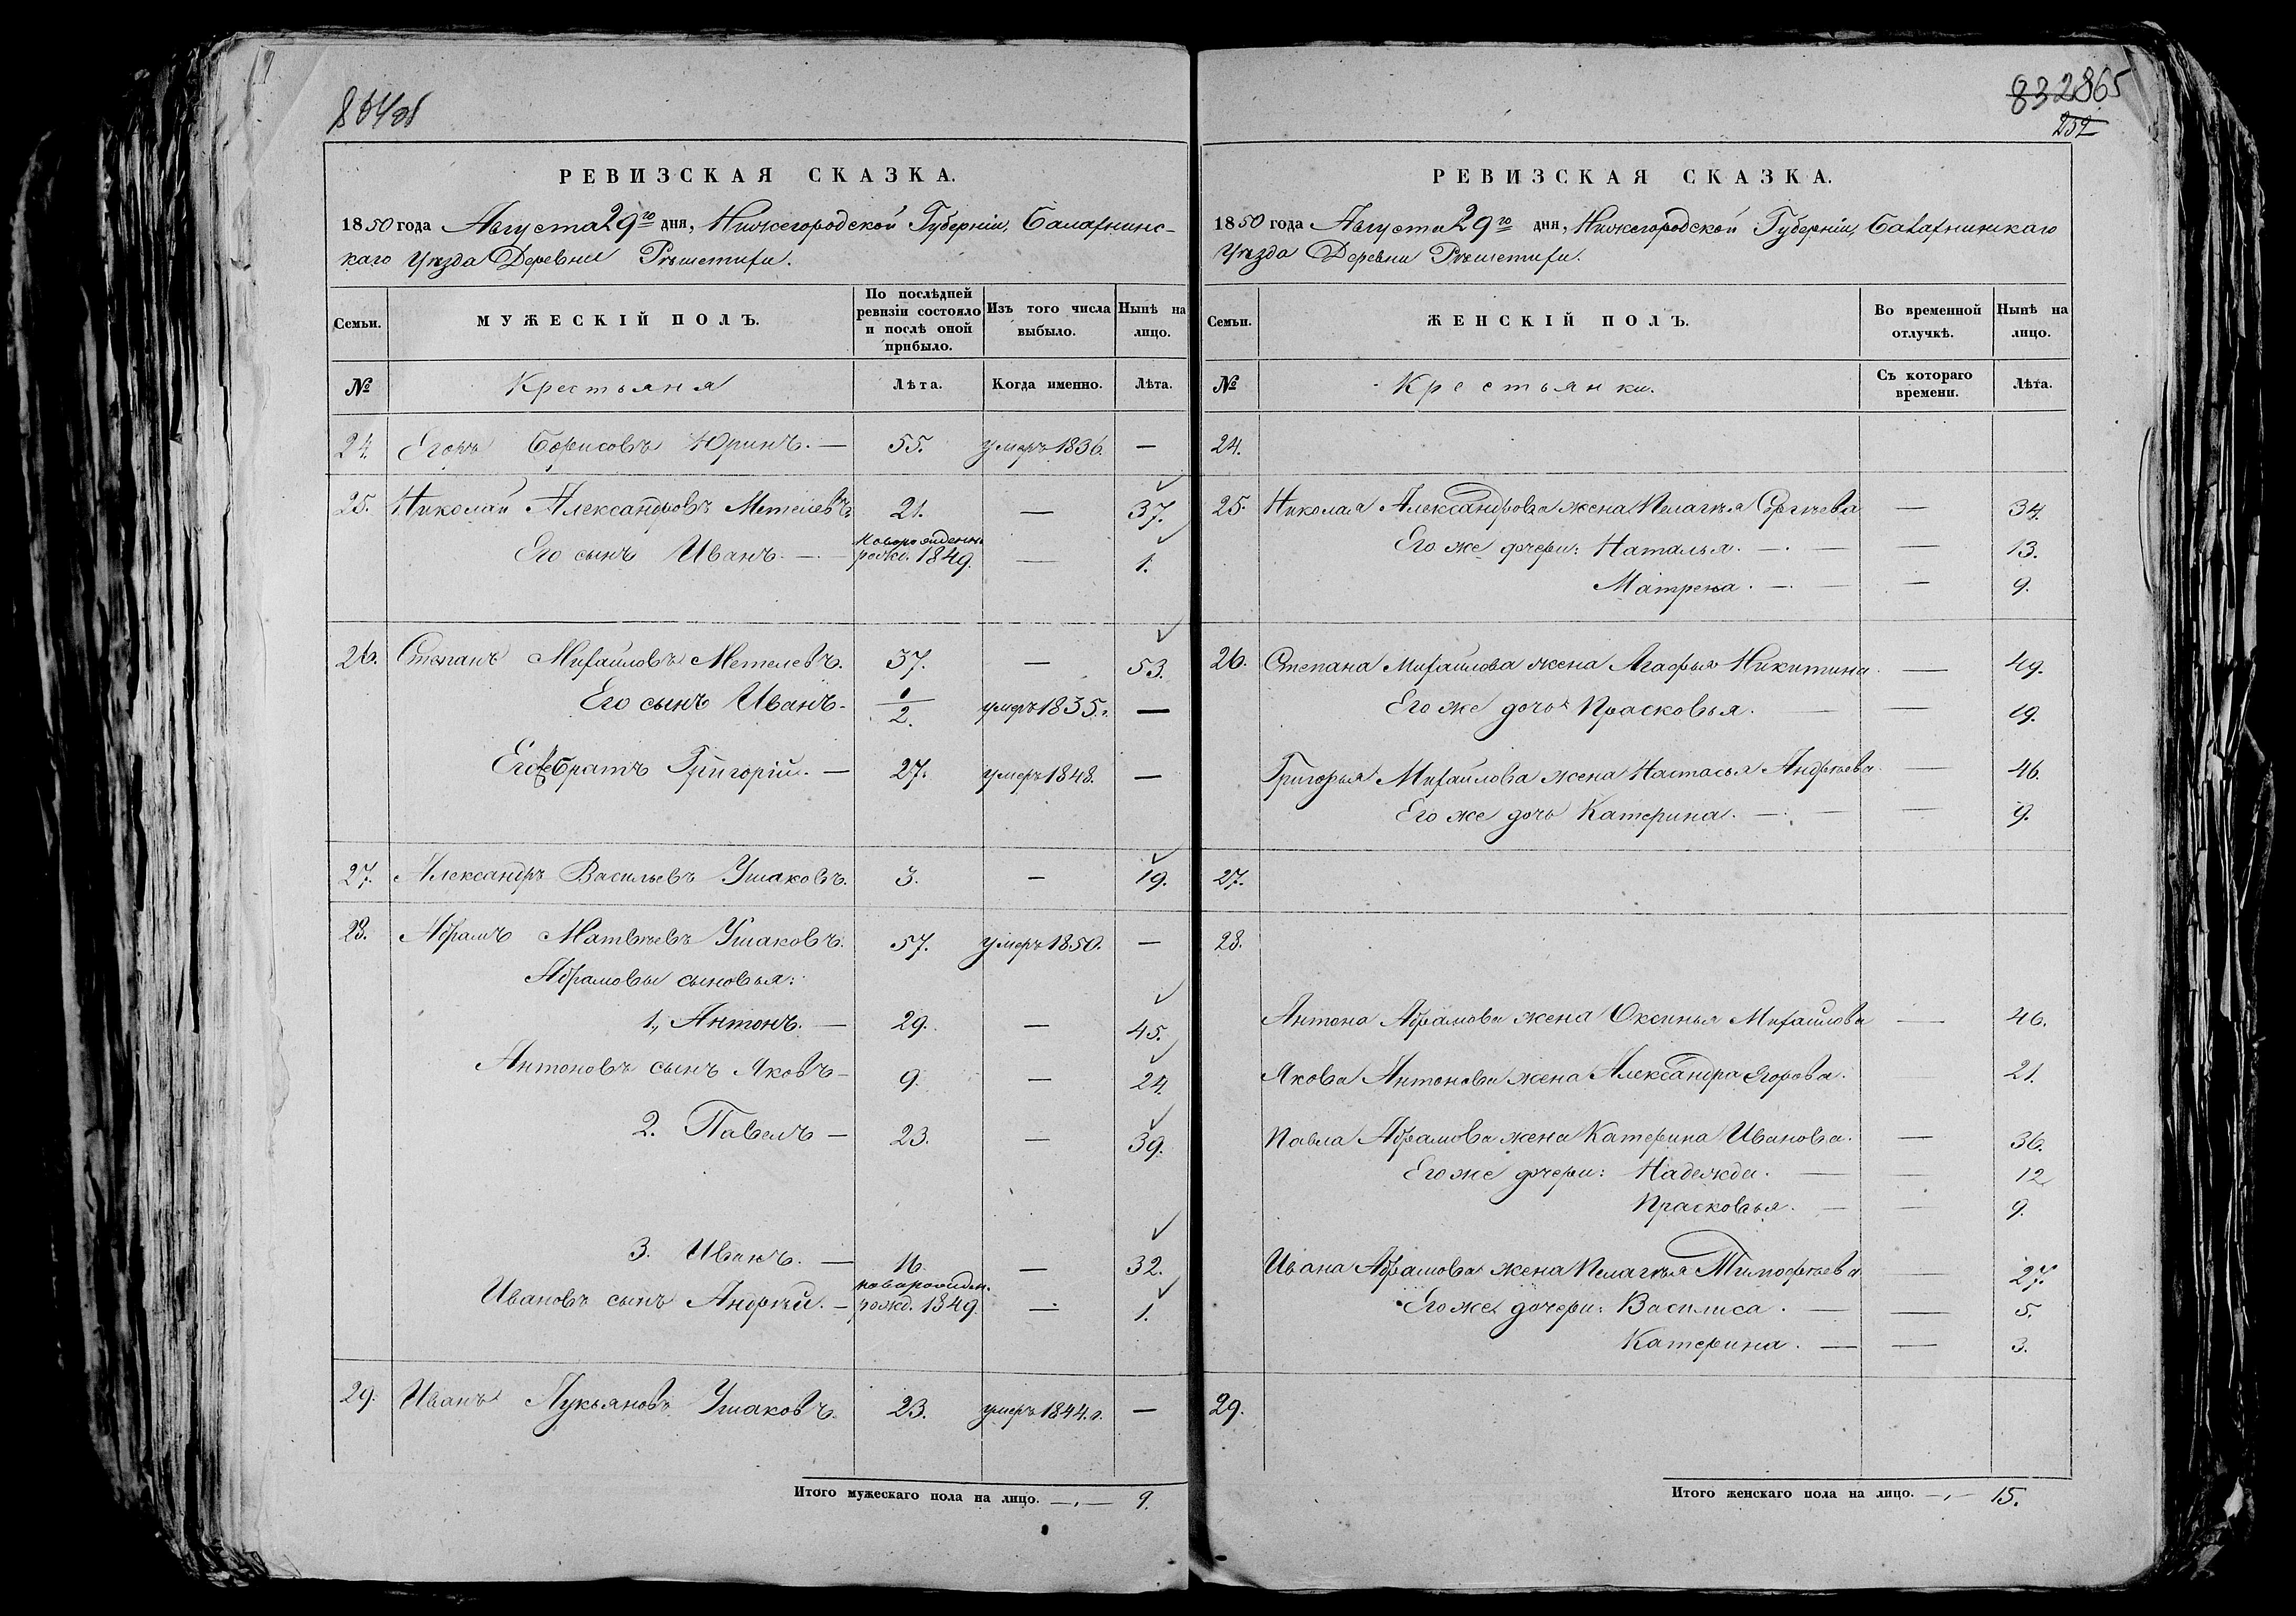 РЕВИЗСКАЯ СКАЗКА.
1850 года Августа 29го дня, Нижегородской Губерніи, Балахнинс-
каго Уѣзда Деревни Рѣшетихи.
Семьи. МУЖЕСКІЙ ПОЛЪ. По послѣдней ревизіи состояло и послѣ оной прибыло. Изъ того числа выбыло. Нынѣ на лицо.
№ Крестьяня Лѣта. Когда именно. Лѣта.
24. Егоръ Борисовъ Юринъ. — 55. умеръ 1836. —
25. Николай Александровъ Метелевъ. 21. — 37.
Его сынъ Иванъ. — новорожденъ рожд. 1849. — 1.
26. Степанъ Михайловъ Метелевъ. 37. — 53.
Его сынъ Иванъ. 1/2. умеръ 1835 г. —
Его же братъ Григорій. — 27. умеръ 1848. —
27. Александръ Васильевъ Ушаковъ. 3. — 19.
28. Абрамъ Матвѣевъ Ушаковъ. 57. умеръ 1850. —
Абрамовы сыновья:
1., Антонъ. — 29. — 45.
Антоновъ сынъ Яковъ — 9. — 24.
2. Павелъ — 23. — 39.
3. Иванъ. — 16. — 32.
Ивановъ сынъ Андрей. — новорожден. рожд. 1849. — 1.
29. Иванъ Лукьяновъ Ушаковъ. 23. умеръ 1844. г. —
Итого мужескаго пола на лицо. —,— 9.
832 865
252
РЕВИЗСКАЯ СКАЗКА.
1850 года Августа 29го дня, Нижегородской Губерніи, Балахнинскаго
Уѣзда Деревни Рѣшетихи.
Семьи. ЖЕНСКІЙ ПОЛЪ. Во временной отлучкѣ. Нынѣ на лицо.
№ Крестьянки. Съ котораго времени. Лѣта.
24.
25. Николая Александрова жена Пелагѣя Сергѣева — 34.
Его же дочери: Наталья. — — 13.
Матрена. — — 9.
26. Степана Михайлова жена Агафья Никитина — 49.
Его же дочь Прасковья. — — 19.
Григорья Михайлова жена Настасья Андрѣева. — 46.
Его же дочь Катерина. — — 9.
27.
28.
Антона Абрамова жена Оксинья Михайлова — 46.
Якова Антонова жена Александра Ягорова. 21.
Павла Абрамова жена Катерина Иванова. — 36.
Его же дочери: Надежда. — — 12.
Прасковья. — — 9.
Ивана Абрамова жена Пелагѣя Тимофѣева — 27.
Его же дочери: Василиса. — — 5.
Катерина. — — 3.
29.
Итого женскаго пола на лицо. —,— 15.